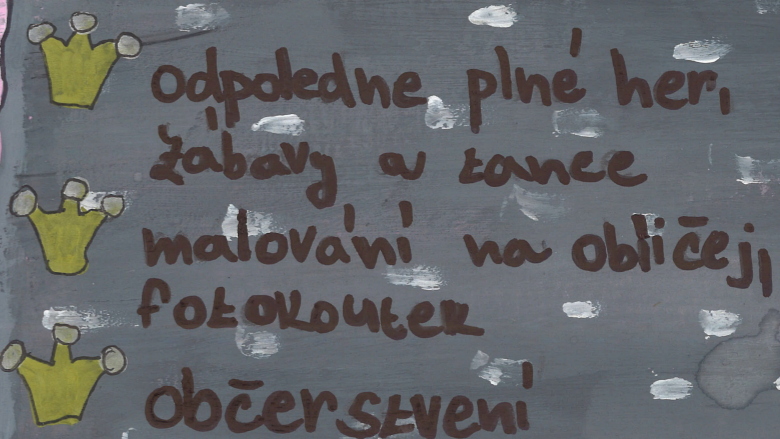 Odpoledne plné her,
žábavy a tance
malování na obličej,
fotokoutek
občerstvení